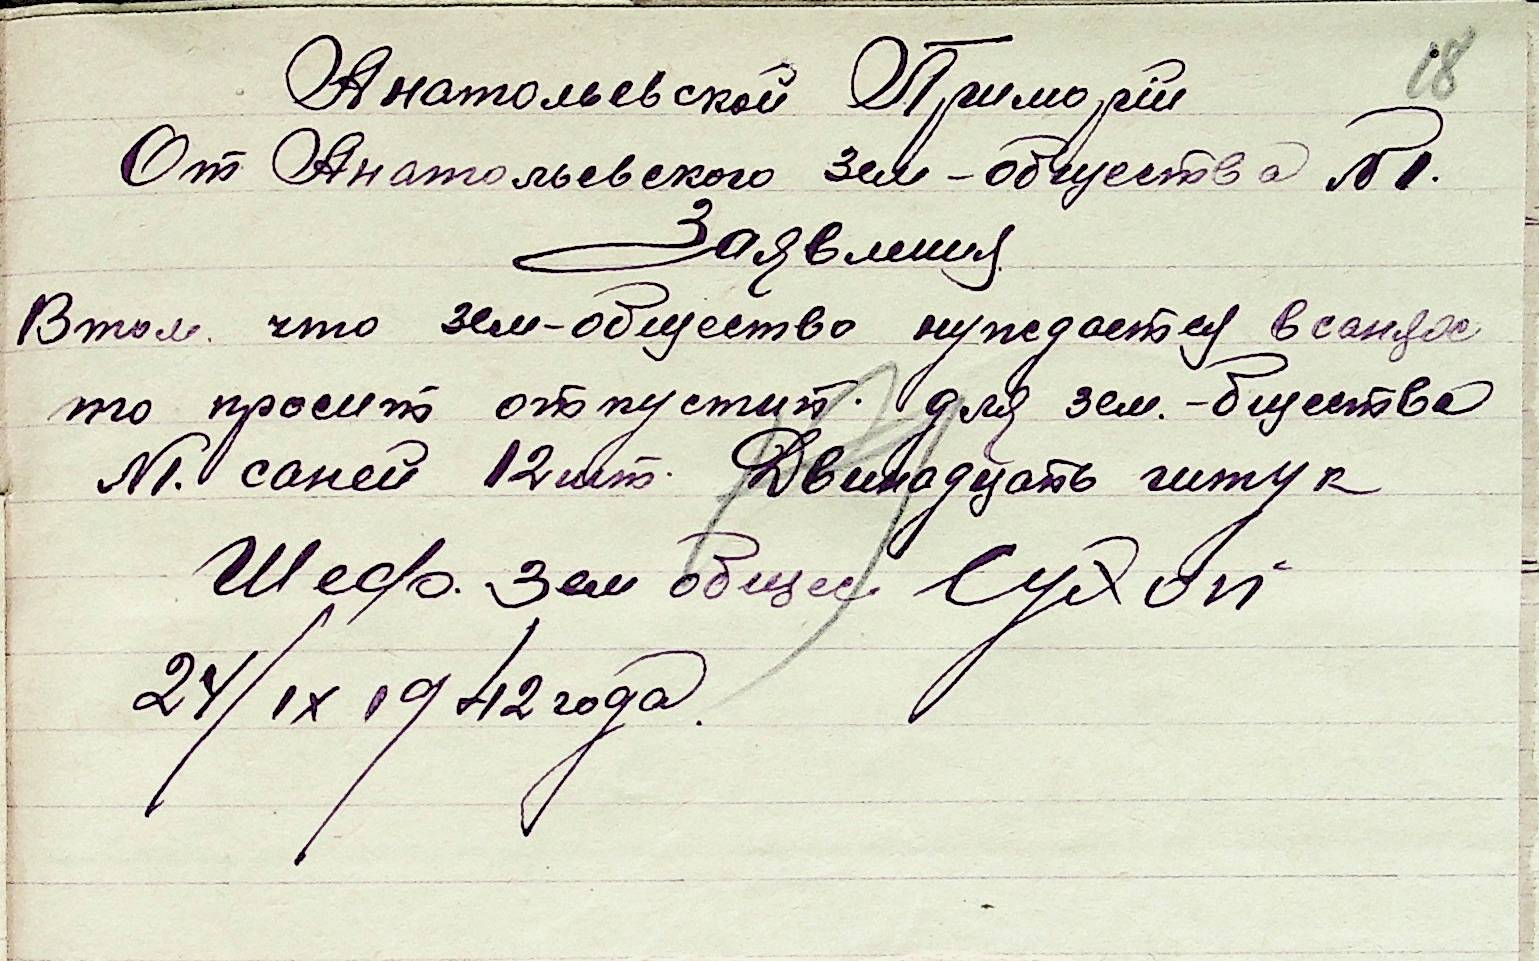 18
Анатольевской Примории
От Анатольевского зем-общества №1.
Заявления
В том. что зем-общество нуждается в санях
то просит отпустит. для зем.-бщества
№1. саней 12 шт. Двинадцать штук
Шеф. Зем общес. Сухой
24/IX 1942 года.